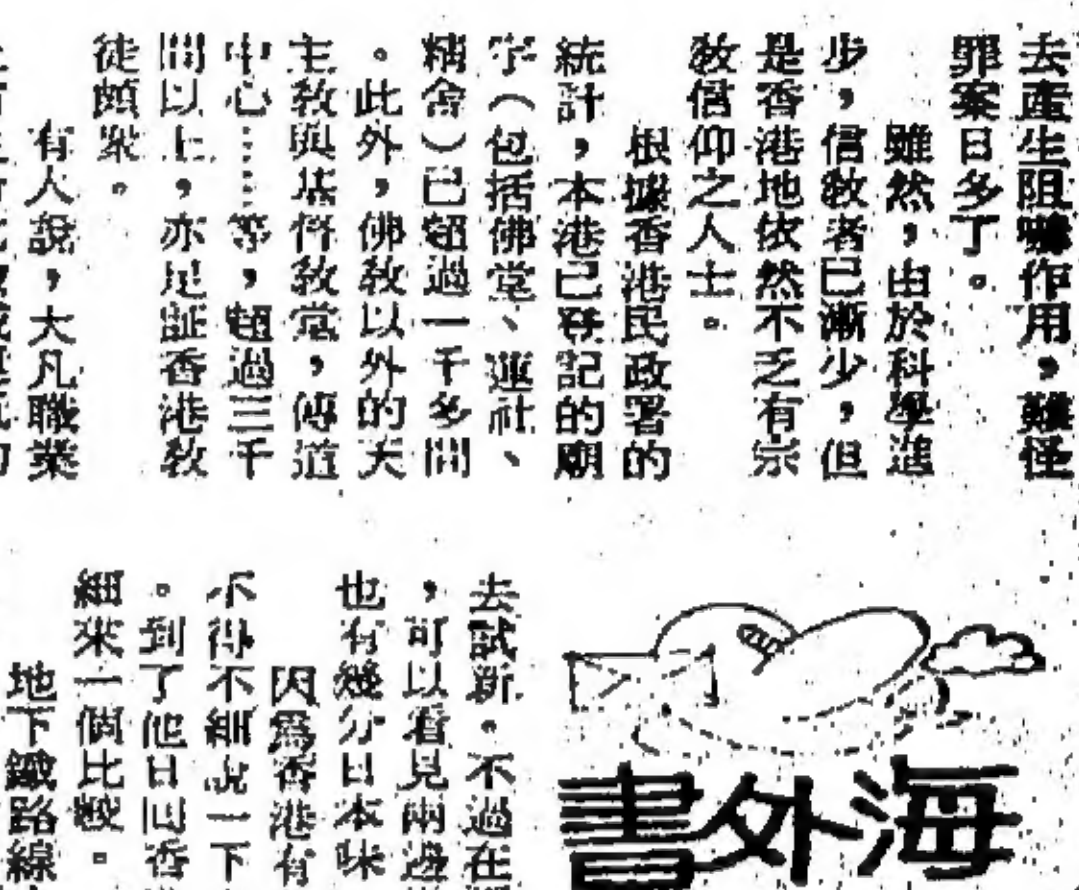 去產生阻嚇作用，難怪
罪案日多了。
雖然，由於科學進
步，信教者已漸少，但
是香港地依然不乏有宗
教信仰之人士。
根據香港民政署的
統計，本港已登記的廟
宇（包括佛堂、蓮社、
精舍）已超過一千多間
。此外，佛教以外的天
主教與基督教堂，傳道
中心……等，超過三千
間以上，亦足証香港教
徒頗衆。
有人說，大凡職業
海外書
去試新。不過在
，可以看見兩邊
也有幾分日本味
因爲香港有
不得不細說一下
。到了他日回香
細來一個比較。
地下鐵路線